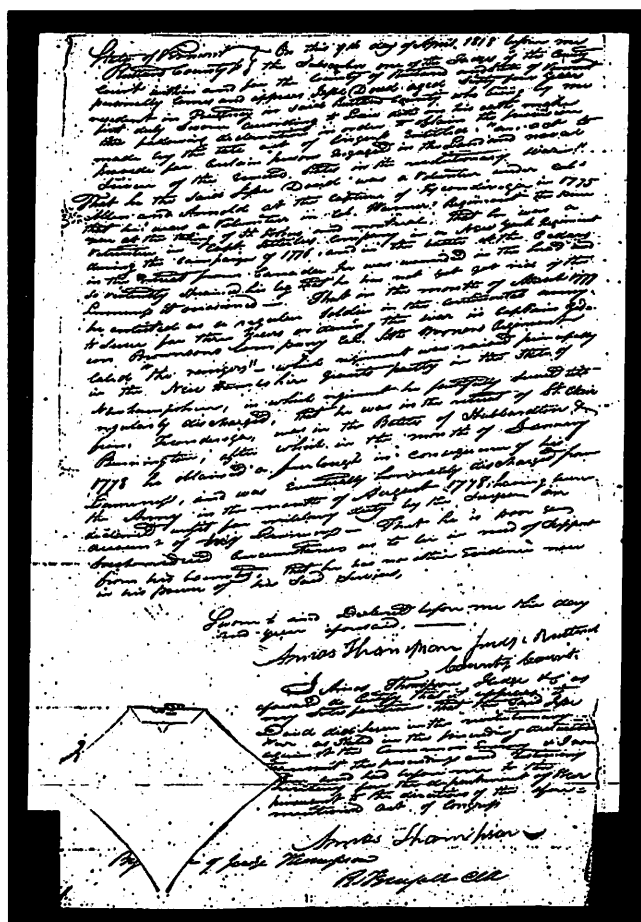 State of Vermont } On this 9th day of April, 1818 before me
Rutland County } the Subscriber one of the Judges of the County
Court within and for the County of Rutland and State of Vermont
personally comes and appears Jesse Doud aged Sixty four years
resident in in said Rutland County, who being by me
first duly Sworn according to Law doth on his oath make
the following declaration in order to obtain the provision
made by the late act of Congress entitled "an act to
provide for certain persons engaged in the land and naval
Service of the United States in the revolutionary War"
That he the said Jesse Doud was a Volunteer under Cols
Allen and Arnold at the capture of Ticonderoga in 1775
that he was a Volunteer in Col. Warner, Regiment the same
year at the taking of St Johns and montreal. that he was a
Volunteer in Capt. Company in a New York Regiment
during the Campaign of 1776, and in the battle at the Cedars
in the retreat from Canada he was wounded in the head and
so violently Strained his leg that he has not yet got rid of the
Lameness it occasioned — That in the month of March 1777
he enlisted as a regular Soldier in the continental army
to Serve for three years or during the war in Captain Gid-
eon Brownsons Company Col. Seth Warners Regiment
called "the rangers" — which regiment was raised principally
in the New Hampshire grants partly in the State of
Newhampshire, in which regiment he faithfully served till
regularly discharged, that he was in the retreat of St Clair
from Ticonderoga, was in the Battles of Hubbardton &
Bennington, after which in the month of January
1778 he obtained a furlough in consequence of his
Lameness, and was eventually honorably discharged from
the Army in the month of August 1778, having been
declared unfit for military duty by the Surgeon on
account of his Lameness — That he is poor &
reduced circumstances as to be in need of Support
from his Country, that he has no other Evidence now
in his power of his Said Services,
Sworn to and Declared before me the day
and year aforesaid. —
Amos Thompson Judge Rutland
County Court.
I Amos Thompson Judge &c as
aforesaid do certify that it appears to
my satisfaction that the Said Jesse
Doud did serve in the revolutionary
War as stated in the preceding declaration
against the Common Enemy & I now
transmit the proceedings and testimony
taken and had before me to the
Secretary for the department of War
pursuant to the directions of the afore-
mentioned act of Congress
Amos Thompson
By of Judge Thompson
Clk